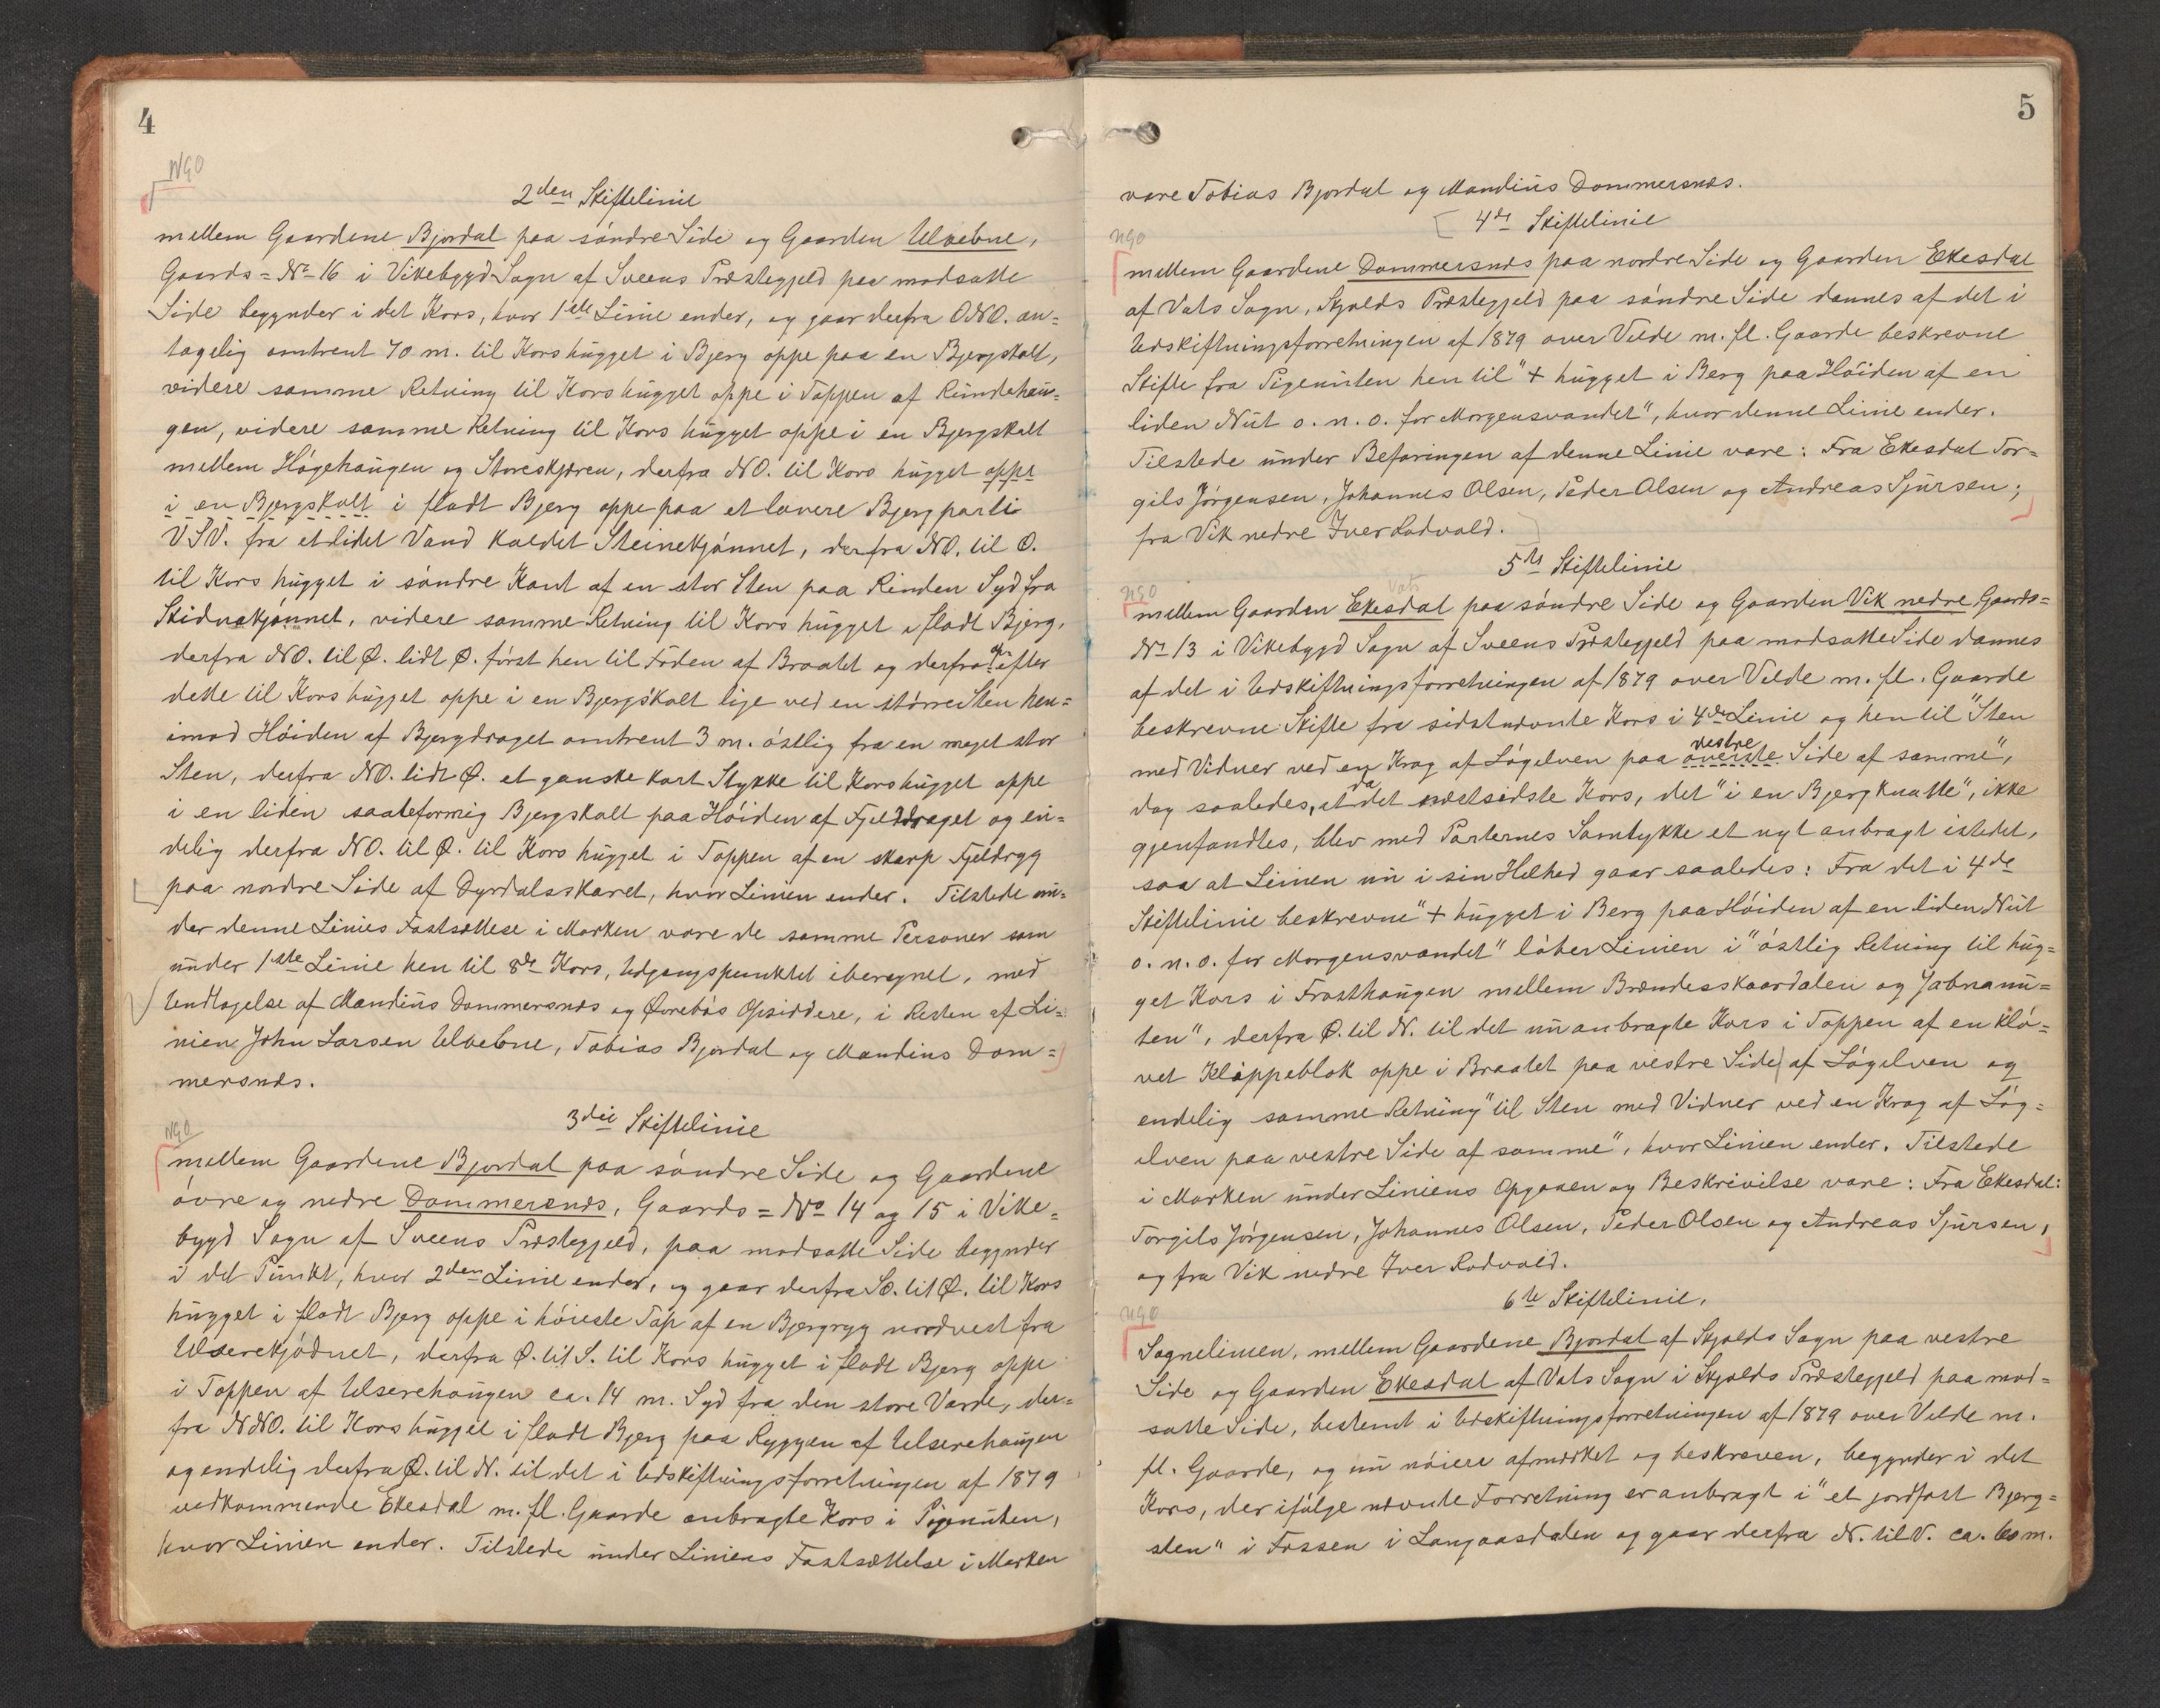 4
NGO
2den Skiftelinie
mellem Gaardene Bjordal paa søndre Side og Gaarden Ulvebne,
Gaards=No 16 i Vikebygd Sogn af Sveens Præstegjeld paa modsatte
Side begynder i det Kors, hvor 1ste Linie ender, og gaar derfra ONO. an=
tagelig omtrent 70 m. til Kors hugget i Bjerg oppe paa en Bjergskolt,
videre samme Retning til Kors hugget oppe i Toppen af Rundehau=
gen, videre samme Retning til Kors hugget oppe i en Bjergskolt
mellem Høgehaugen og Storeskjæren, derfra NO. til Kors hugget oppe
i en Bjergskolt i fladt Bjerg oppe paa et lavere Bjergparti
VSV. fra et lidet Vand kaldet Steinekjønnet, derfra NO. til O.
til Kors hugget i søndre Kant af en stor Sten paa Rinden Syd fra
Skidnakjønnet, videre samme Retning til Kors hugget i fladt Bjerg,
derfra NO. til Ø. lidt Ø. først hen til Foden af Braatet og derfra op efter
dette til Kors hugget oppe i en Bjergskolt lige ved en større Sten hen=
imod Høiden af Bjergdraget omtrent 3 m. østlig fra en meget stor
Sten, derfra NO. lidt Ø. et ganske kort Stykke til Kors hugget oppe
i en liden saateformig Bjergskolt paa Høiden af Fjelddraget og en=
delig derfra NO. til Ø. til Kors hugget i Toppen af en skarp Fjeldryg
paa nordre Side af Dyrdalsskaret, hvor Linien ender. Tilstede un=
der denne Linies Fastsættese i Marken vare de samme Personer som
under 1ste Linie hen til 8de Kors, Udgangspunktet iberegnet, med
Undtagelse af Mandius Dommersnæs og Øvrebøs Opsiddere, i Resten af Li=
nien John Larsen Ulvebne, Tobias Bjordal og Mandius Dom=
mersnæs.
NGO
3die Skiftelinie
mellem Gaardene Bjordal paa søndre Side og Gaardene
øvre og nedre Dommersnæs, Gaards=No 14 og 15 i Vike=
bygd Sogn af Sveens Præstegjeld, paa modsatte Side begynder
i det Punkt, hvor 2den Linie ender, og gaar derfra SO. til Ø. til Kors
hugget i fladt Bjerg oppe i høieste Top af en Bjergryg nordvest fra
Ulserekjødnet, derfra Ø. til S. til Kors hugget i fladt Bjerg oppe
i Toppen af Ulserehaugen ca. 14 m. Syd fra den store Varde, der=
fra NNO. til Kors hugget i fladt Bjerg paa Ryggen af Ulserehaugen
og endelig derfra Ø. til N. til det i Udskiftningsforretningen af 1879
vedkommende Ekesdal m. fl. Gaarde anbragte Kors i Pigenuten,
hvor Linien ender. Tilstede under Liniens Fastsættelse i Marken
5
vare Tobias Bjordal og Mandius Dommersnæs.
4de Skiftelinie
NGO
mellem Gaardene Dommersnæs paa nordre Side og Gaarden Ekesdal
af Vats Sogn, Skjolds Præstegjeld paa søndre Side dannes af det i
Udskiftningsforretningen af 1879 over Velde m. fl. Gaarde beskrevne
Skifte fra Pigenuten hen til "+ hugget i Berg paa Høiden af en
liden Nut o. n. o. for Morgensvandet", hvor denne Linie ender.
Tilstede under Befaringen af denne Linie vare: Fra Ekesdal Tor=
gils Jørgensen, Johannes Olsen, Peder Olsen og Andreas Sjursen;
fra Vik nedre Iver Rødvold.
5te Skiftelinie
NGO
Vats
mellem Gaarden Ekesdal paa søndre Side og Gaarden Vik nedre Gaards=
No 13 i Vikebygd Sogn af Sveens Præstegjeld paa modsatte Side dannes
af det i Udskiftningsforretningen af 1879 over Velde m. fl. Gaarde
beskrevne Skifte fra sidstnævnte Kors i 4de Linie og hen til "Sten
med Vidner ved en Krog af Løgelven paa øverste vestre Side af samme",
dog saaledes, at da det næstsidste Kors, det "i en Bjergknatte", ikke
gjenfandtes, blev med Parternes Samtykke et nyt anbragt istedet,
saa at Linien nu i sin Helhed gaar saaledes: Fra det i 4de
Skiftelinie beskrevne "+ hugget i Berg paa Høiden af en liden Nut
o. n. o. for Morgensvandet" løber Linien i "østlig Retning til hug=
get Kors i Frosthaugen mellem Brændesskaardalen og Jabnanu=
ten", derfra Ø. til N. til det nu anbragte Kors i Toppen af en klø=
vet Kløppeblok oppe i Braatet paa vestre Side af Løgelven og
endelig samme Retning "til Sten med Vidner ved en Krog af Løg=
elven paa vestre Side af samme", hvor Linien ender. Tilstede
i Marken under Liniens Opgaaen og Beskrivilse vare: Fra Ekesdal:
Torgils Jørgensen, Johannes Olsen, Peder Olsen og Andreas Sjursen,
og fra Vik nedre Iver Rødvold.
6te Skiftelinie,
NGO
Sognelinien, mellem Gaardene Bjordal af Skjolds Sogn paa vestre
Side og Gaarden Ekesdal af Vats Sogn i Skjolds Præstegjeld paa mod=
satte Side, bestemt i Udskiftningsforretningen af 1879 over Velde m.
fl. Gaarde, og nu nøiere afmærket og beskreven, begynder i det
Kors, der ifølge nævnte Forretning er anbragt i "et jordfast Bjerg=
sten" i Fossen i Langaasdalen og gaar derfra N. til V. ca. 60 m.